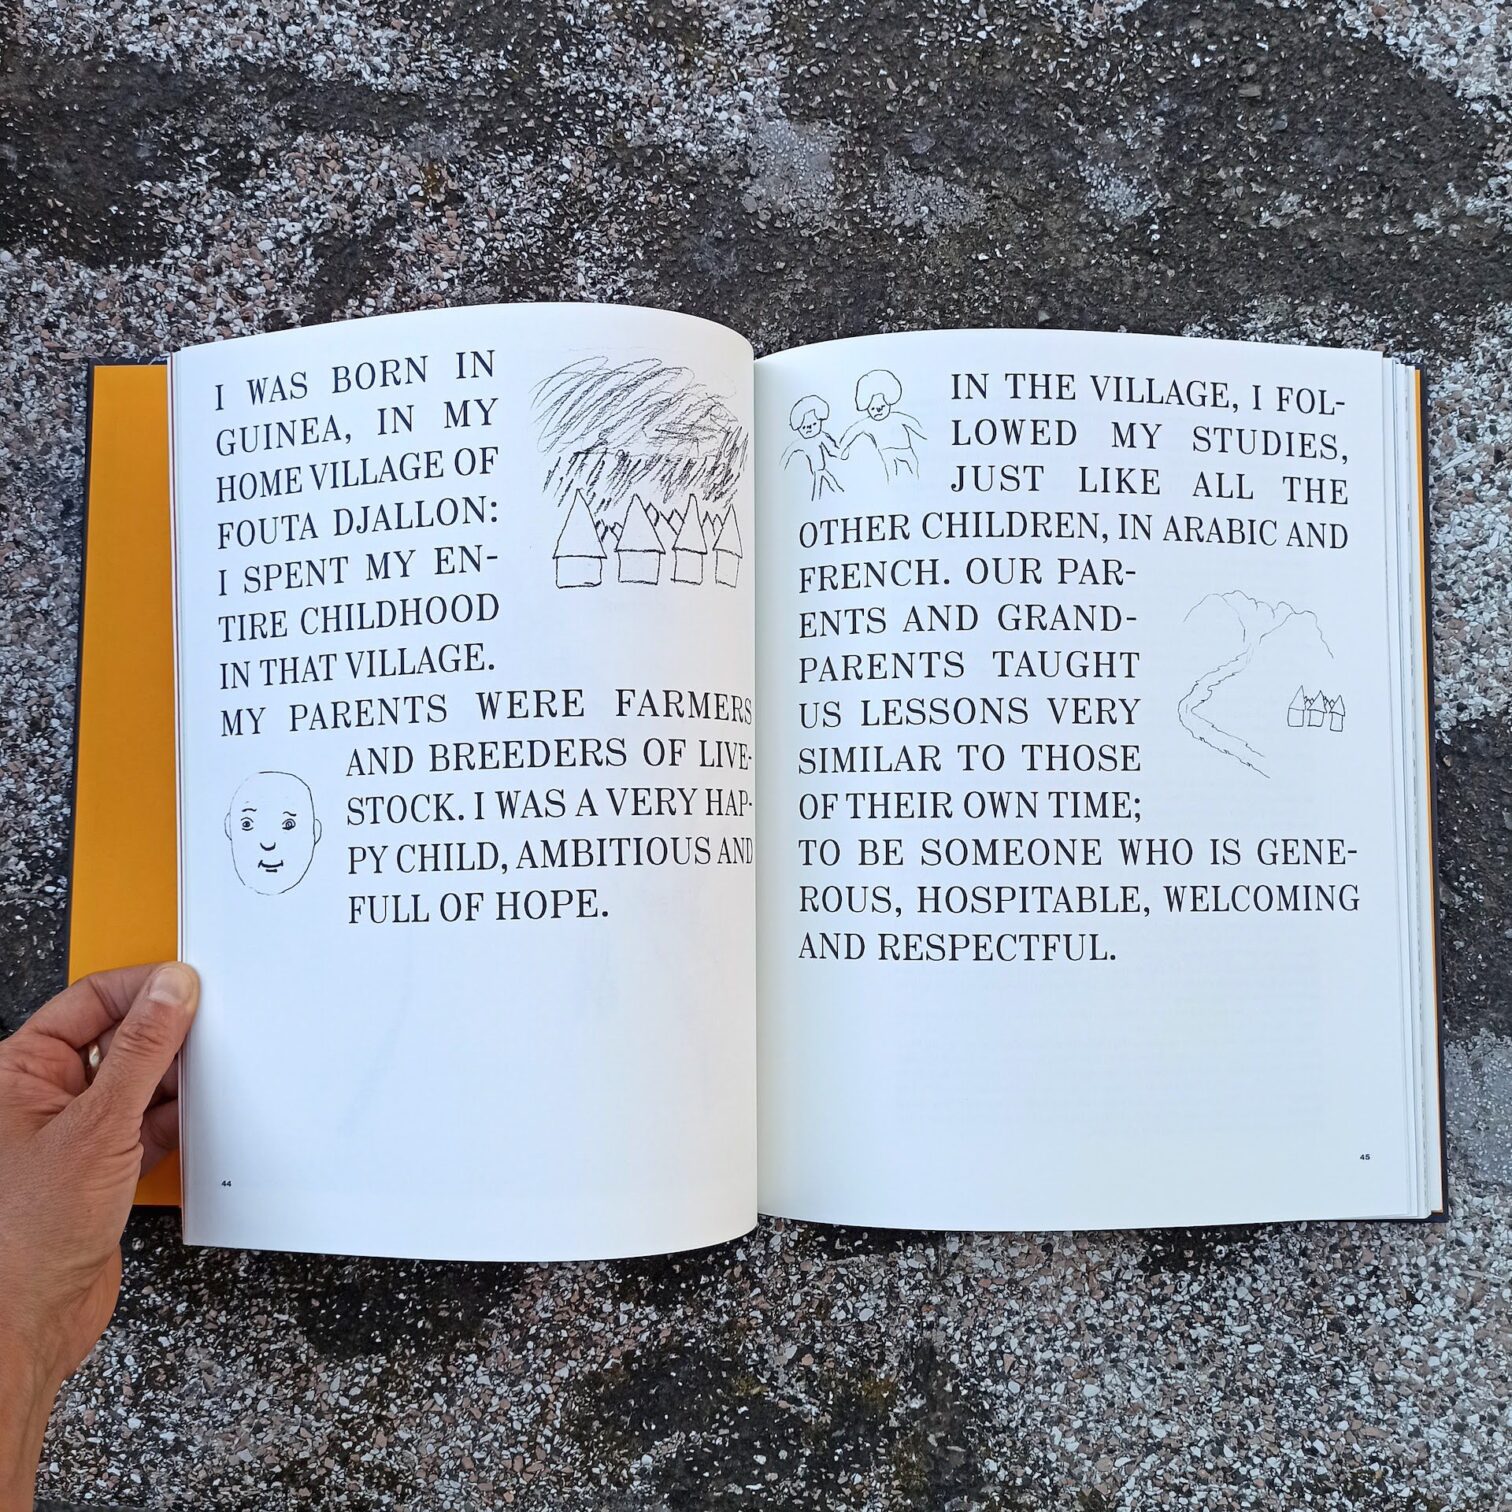 I WAS BORN IN
GUINEA, IN MY
HOME VILLAGE OF
FOUTA DJALLON:
I SPENT MY EN-
TIRE CHILDHOOD
IN THAT VILLAGE.
MY PARENTS WERE FARMERS
AND BREEDERS OF LIVE-
STOCK. I WAS A VERY HAP-
PY CHILD, AMBITIOUS AND
FULL OF HOPE.
44
IN THE VILLAGE, I FOL-
LOWED MY STUDIES,
JUST LIKE ALL THE
OTHER CHILDREN, IN ARABIC AND
FRENCH. OUR PAR-
ENTS AND GRAND-
PARENTS TAUGHT
US LESSONS VERY
SIMILAR TO THOSE
OF THEIR OWN TIME;
TO BE SOMEONE WHO IS GENE-
ROUS, HOSPITABLE, WELCOMING
AND RESPECTFUL.
45